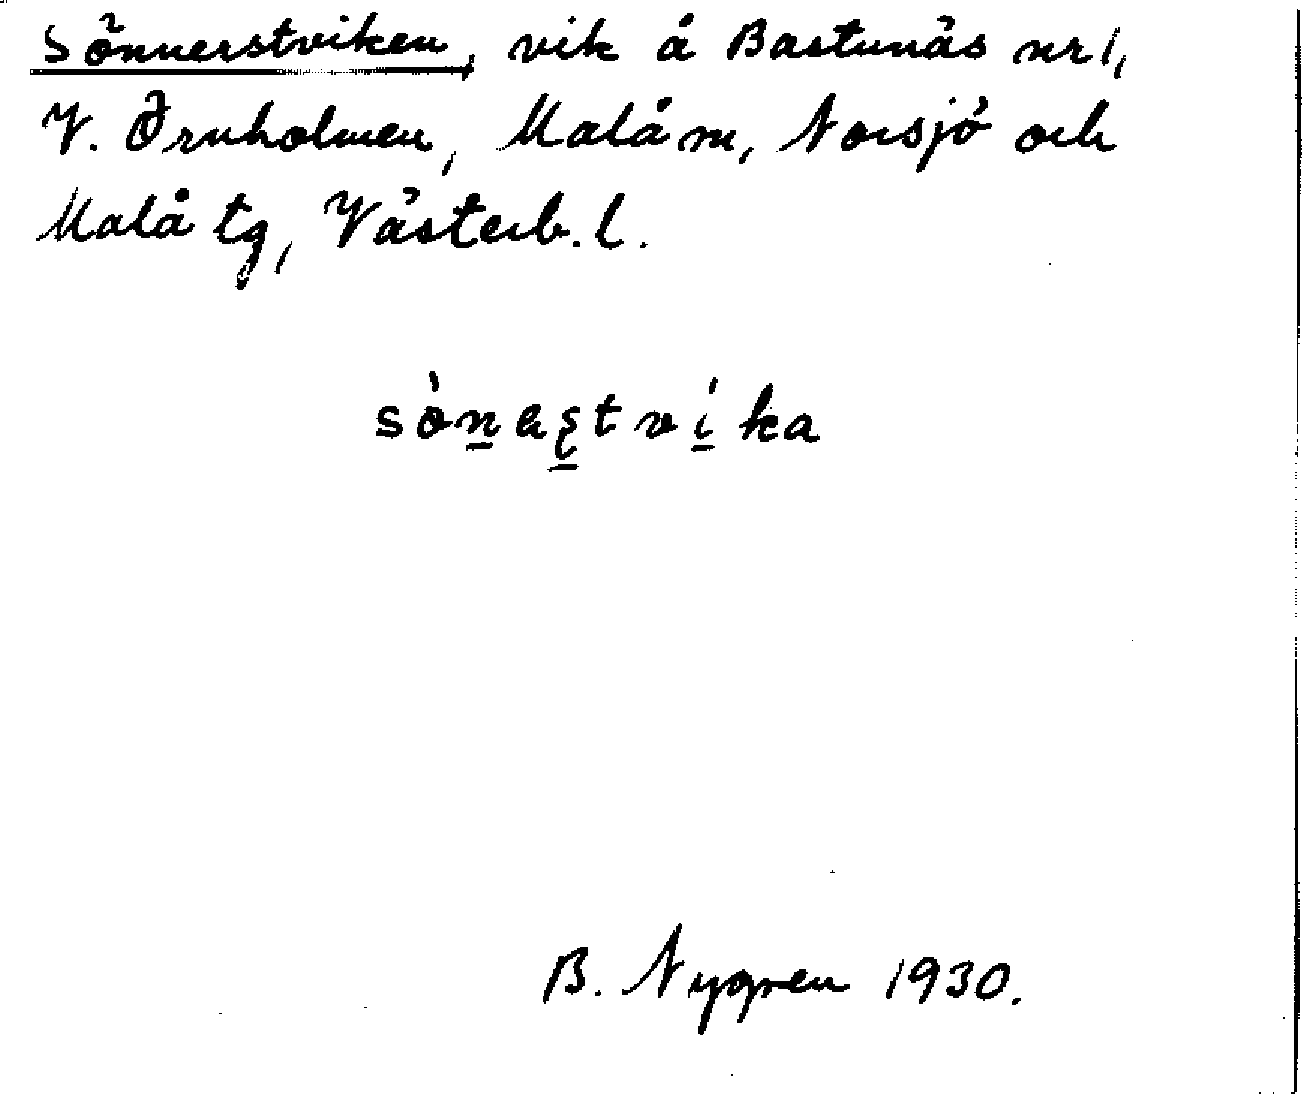 Sönnerstviken, vik å Bastunäs nr 1,
V. Örnholmen, Malå sn, Norsjö och
Malå tg, Västerb. l.
sònastvíka
B. Nygren 1930.